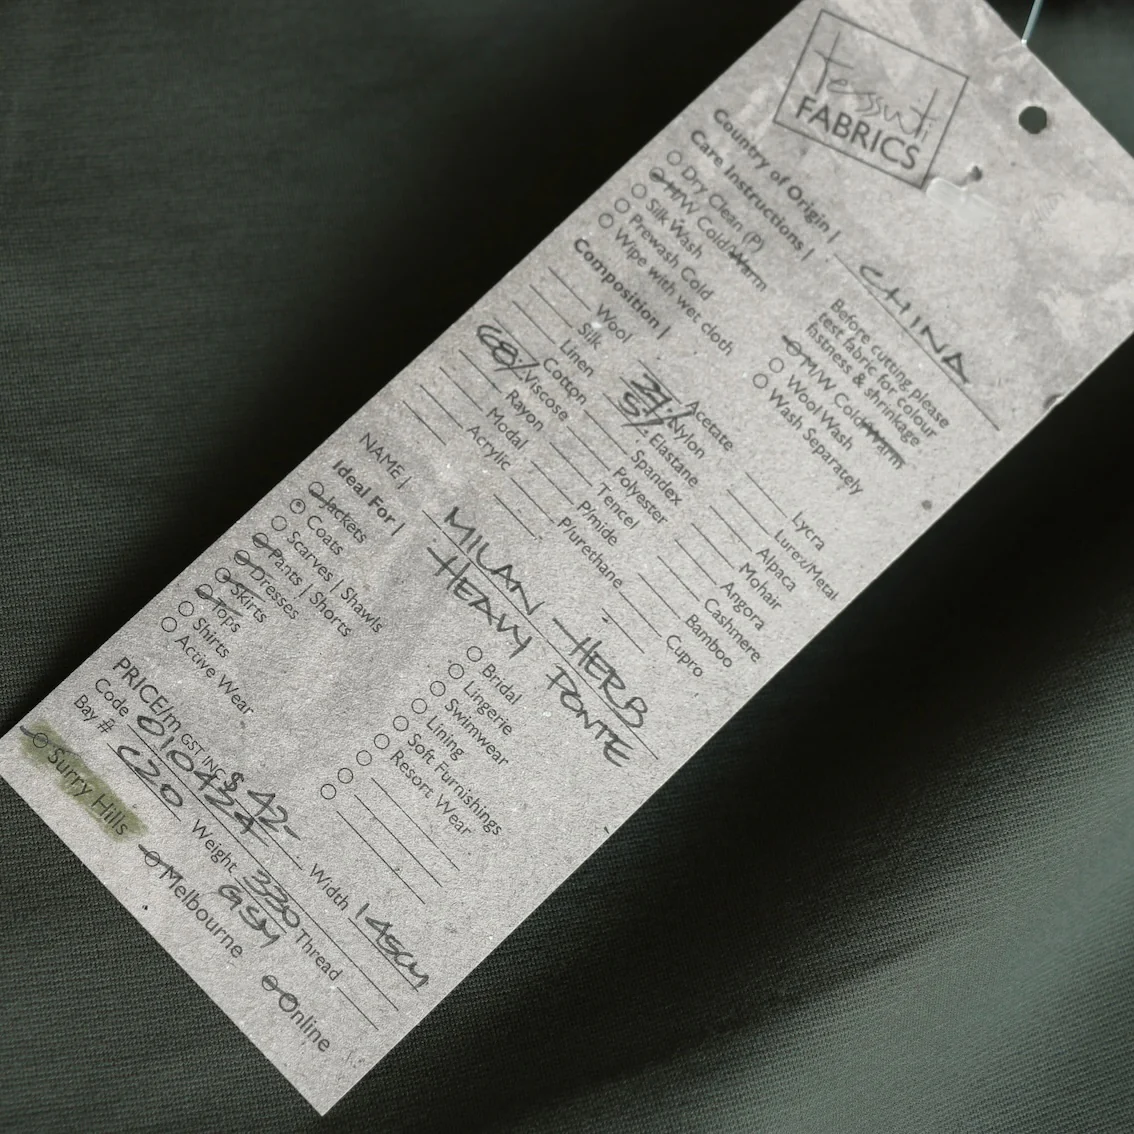 tessuti
FABRICS
Country of Origin | CHINA
Care Instructions |
Dry Clean (P)
H/W Cold/Warm
Silk Wash
Prewash Cold
Wipe with wet cloth
Before cutting please
test fabric for colour
fastness & shrinkage
M/W Cold/Warm
Wool Wash
Wash Separately
Composition |
Wool
Silk
Linen
Cotton
68% Viscose
Rayon
Modal
Acrylic
Acetate
27% Nylon
5% Elastane
Spandex
Polyester
Tencel
P/mide
P/urethane
Lycra
Lurex/Metal
Alpaca
Mohair
Angora
Cashmere
Bamboo
Cupro
NAME | MILAN HERB
HEAVY PONTE
Ideal For |
Jackets
Coats
Scarves | Shawls
Pants | Shorts
Dresses
Skirts
Tops
Shirts
Active Wear
Bridal
Lingerie
Swimwear
Lining
Soft Furnishings
Resort Wear
PRICE/m GST INC $42- Width 145cm
Code 010424 Weight 330 GSM Thread
Bay # C20
Surry Hills
Melbourne
Online